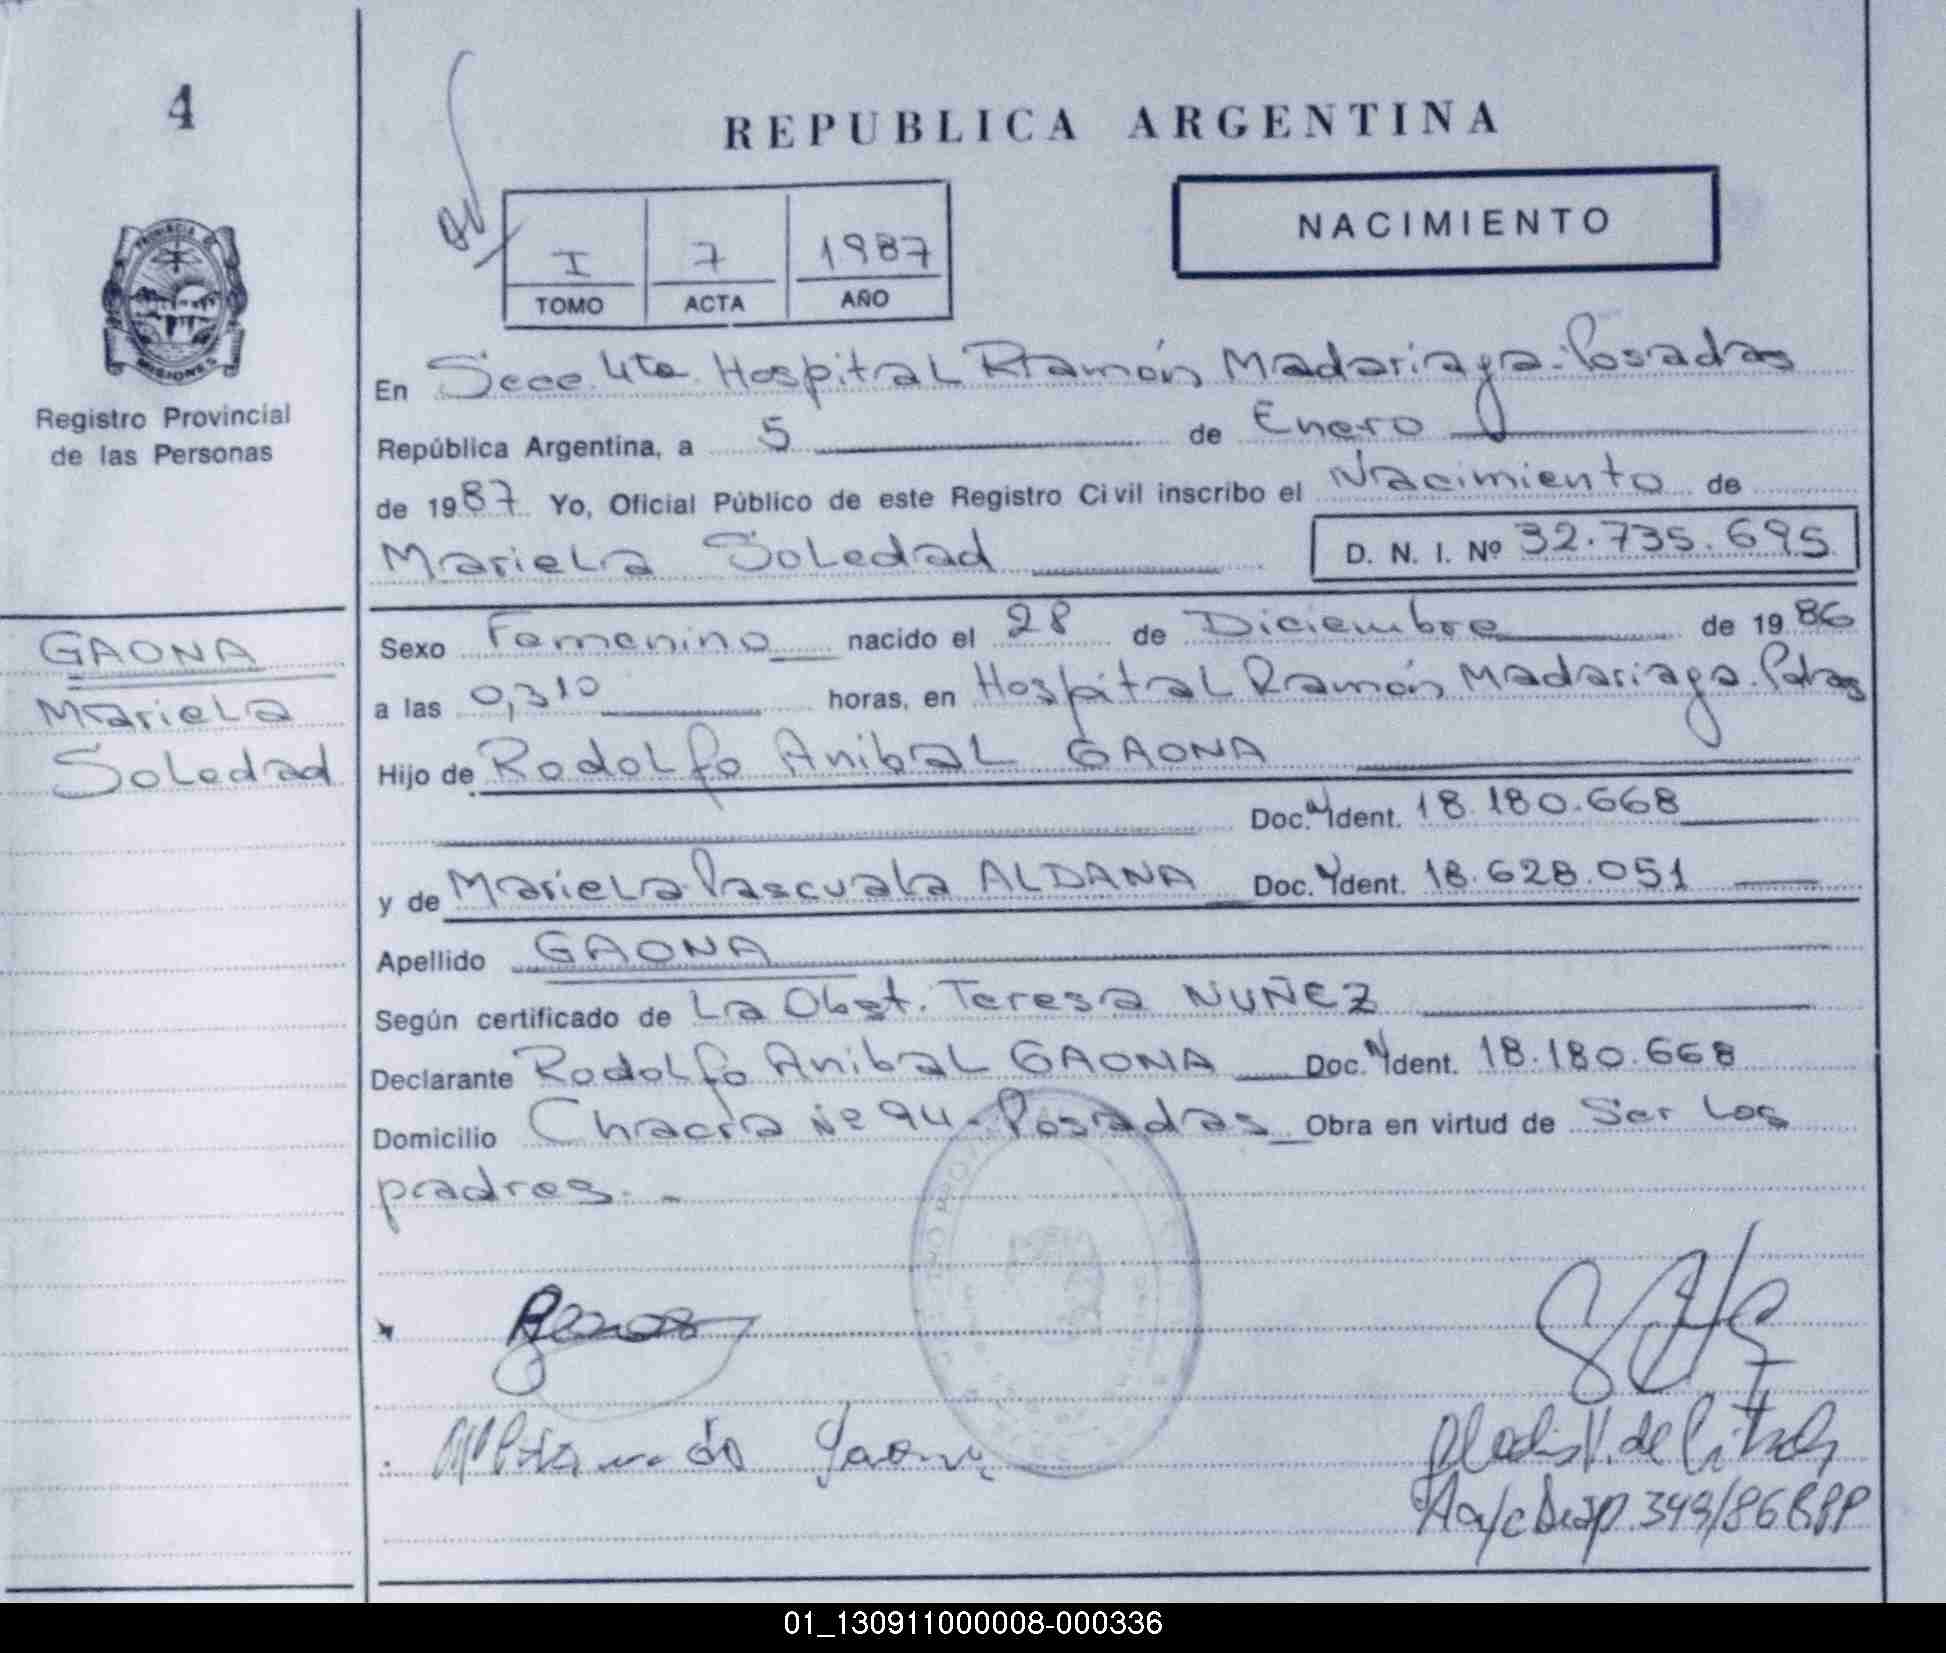 4
REPUBLICA ARGENTINA
NACIMIENTO
I 7 1987
TOMO ACTA AÑO
PROVINCIA DE MISIONES
Registro Provincial
de las Personas
En Secc 4ta. Hospital Ramón Madariaga-Posadas
República Argentina, a 5 de Enero
de 1987 Yo, Oficial Público de este Registro Civil inscribo el Nacimiento de
Mariela Soledad D. N. I. Nº 32.735.695
GAONA
Mariela
Soledad
Sexo Femenino nacido el 28 de Diciembre de 1986
a las 0,310 horas, en Hospital Ramón Madariaga. Pdas
Hijo de Rodolfo Anibal GAONA
Doc. Ident. 18.180.668
y de Mariela Pascuala ALDANA Doc. Ident. 18.628.051
Apellido GAONA
Según certificado de La Obst. Teresa NUÑEZ
Declarante Rodolfo Anibal GAONA Doc. Ident. 18.180.668
Domicilio Chacra Nº 94 - Posadas Obra en virtud de Ser los
padres. -
Gaona
de
A a/c Disp. 349/86 RPP
01_130911000008-000336